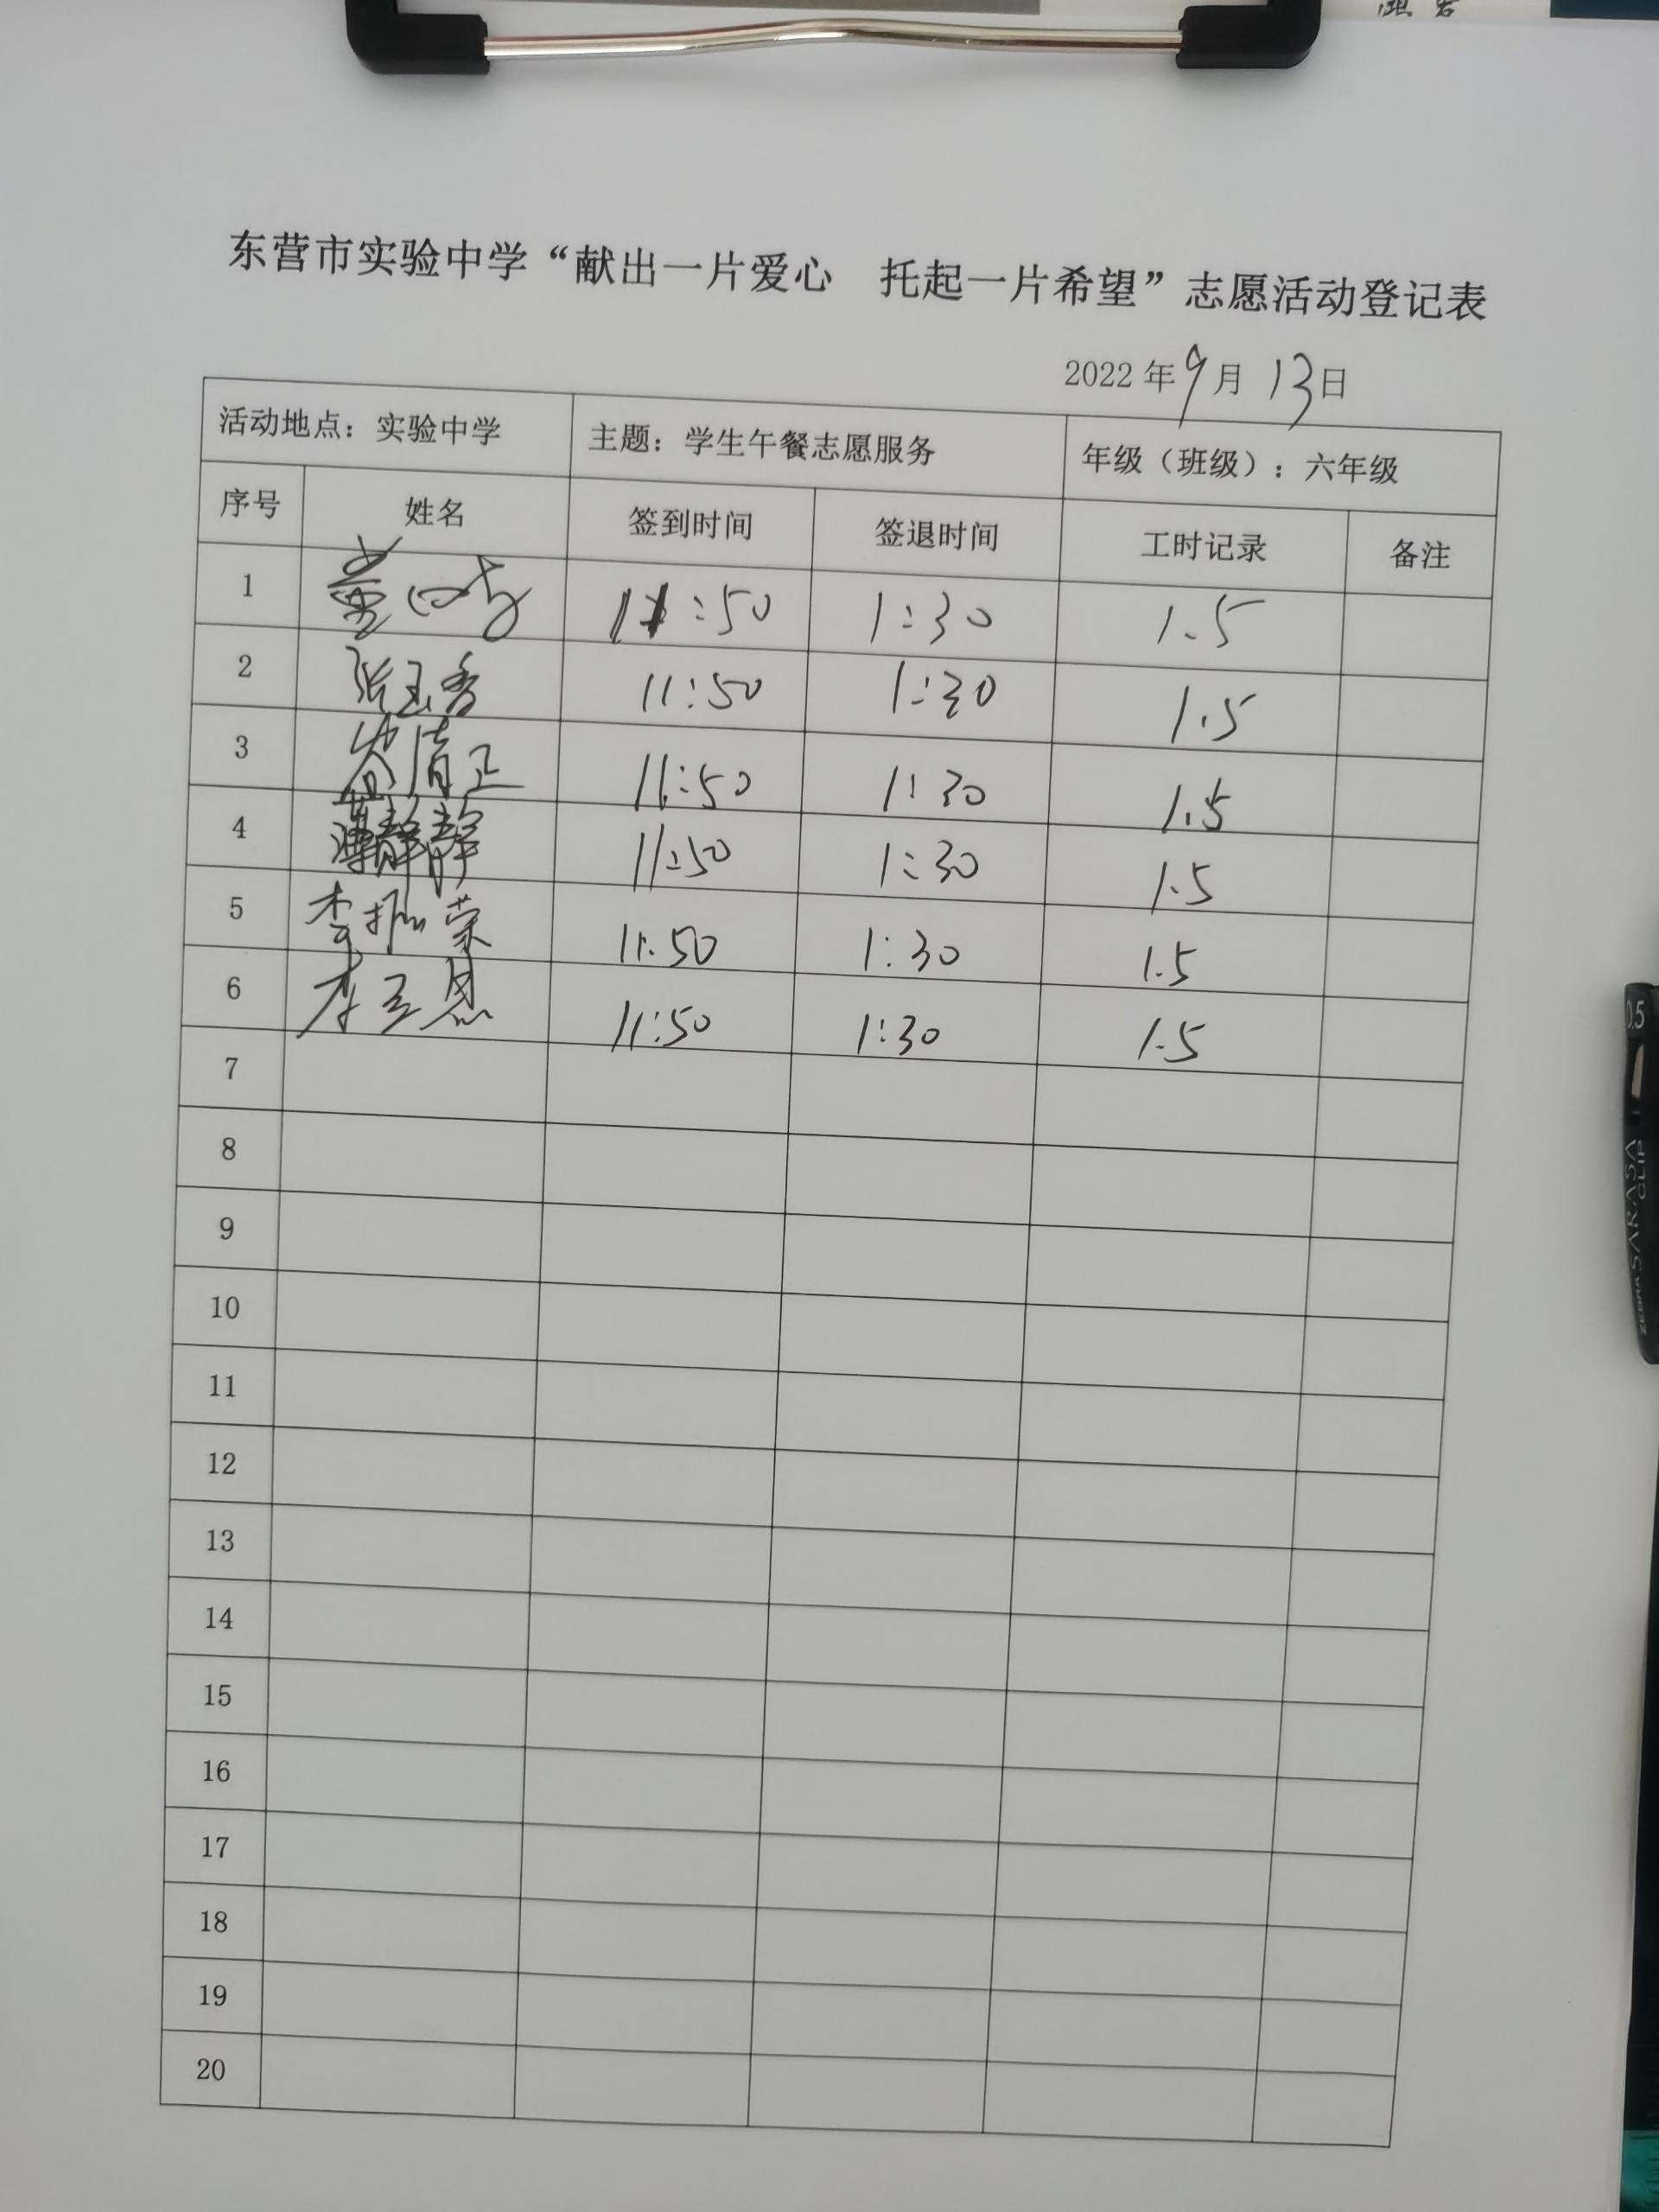 东营市实验中学“献出一片爱心 托起一片希望”志愿活动登记表
2022年9月13日
活动地点：实验中学 主题：学生午餐志愿服务 年级（班级）：六年级
序号 姓名 签到时间 签退时间 工时记录 备注
1 董 11:50 1:30 1.5
2 张玉香 11:50 1:30 1.5
3 清正 11:50 1:30 1.5
4 薄静静 11:50 1:30 1.5
5 李振荣 11:50 1:30 1.5
6 李 恩 11:50 1:30 1.5
7
8
9
10
11
12
13
14
15
16
17
18
19
20
0.5
ZEBRA SARASA CLIP